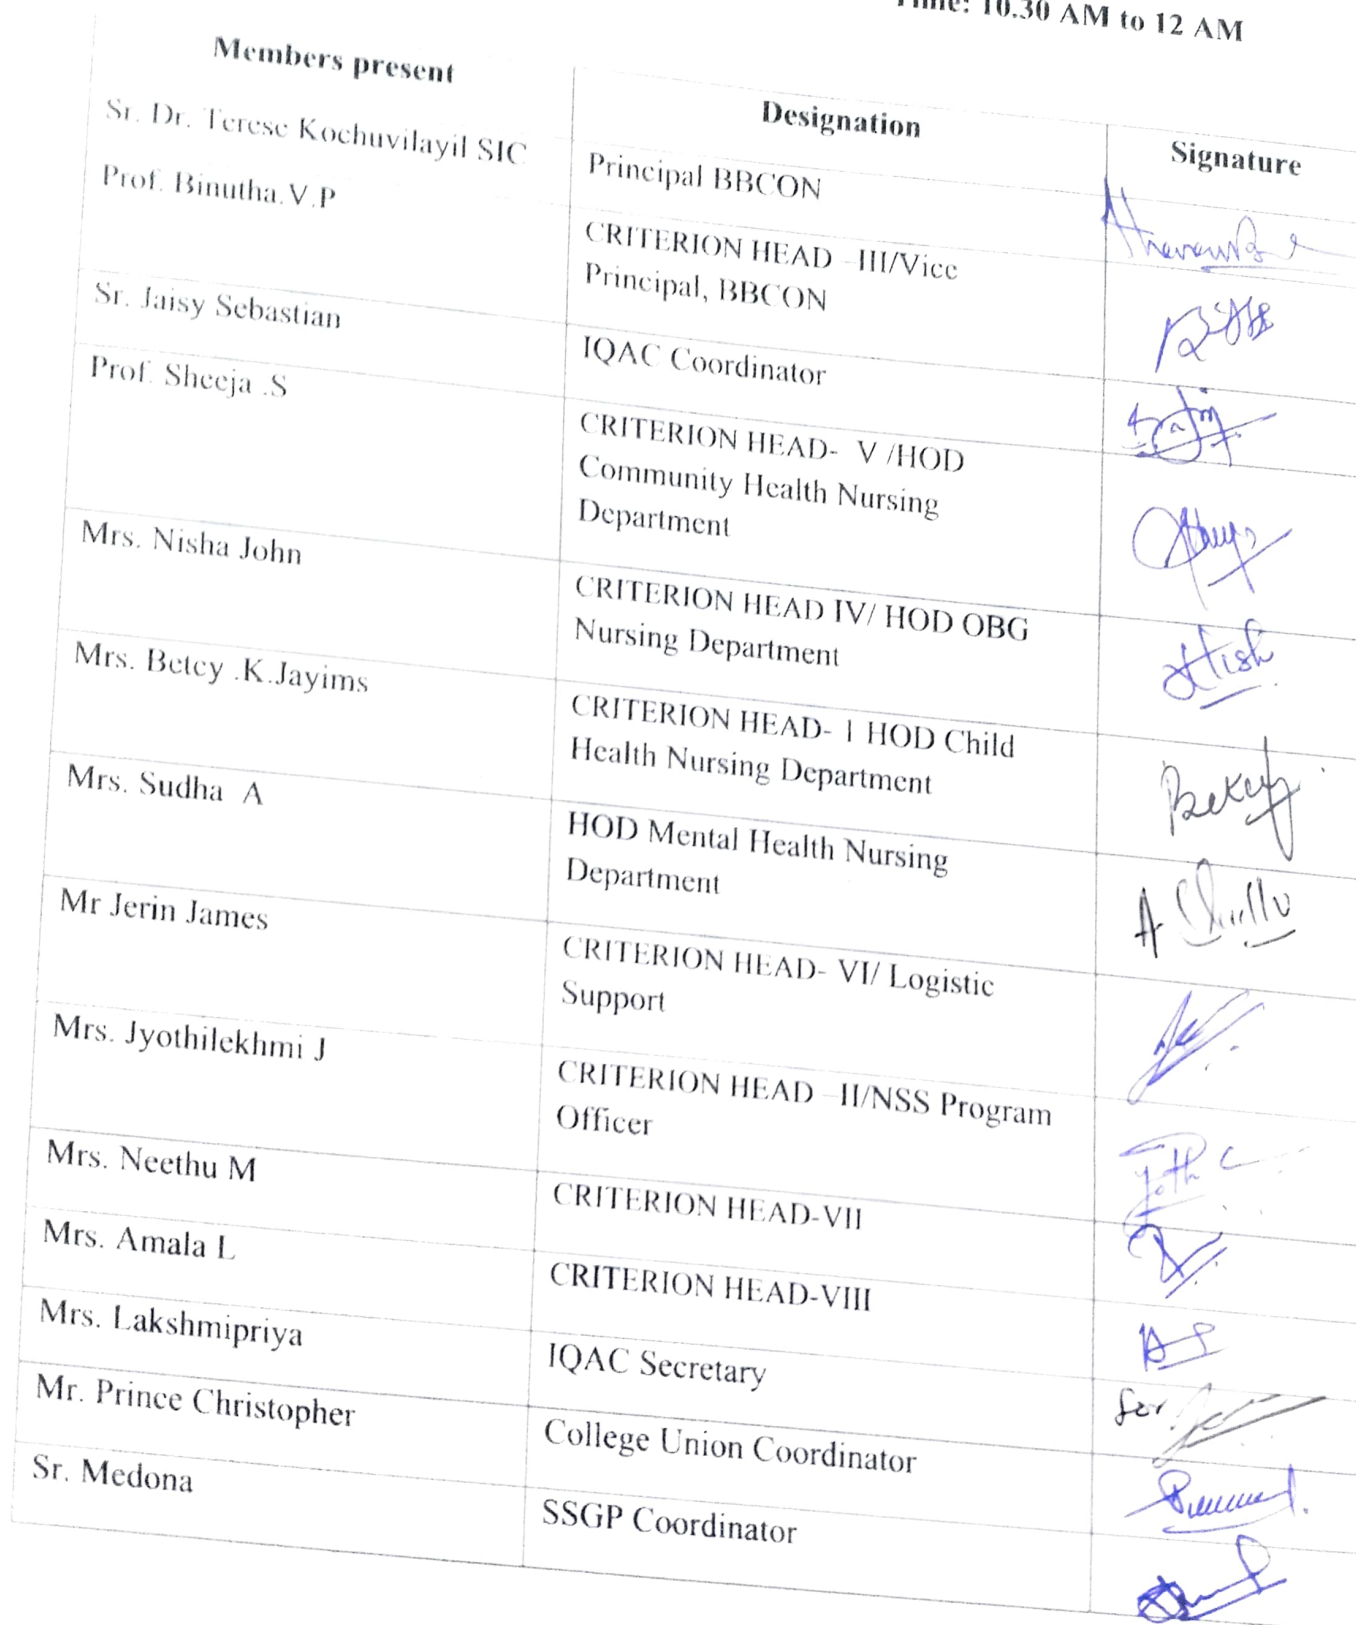 Time: 10.30 AM to 12 AM
Members present
Designation
Signature
Sr. Dr. Terese Kochuvilayil SIC
Principal BBCON
Prof. Binutha.V.P
CRITERION HEAD -III/Vice
Principal, BBCON
Sr. Jaisy Sebastian
IQAC Coordinator
Prof. Sheeja .S
CRITERION HEAD- V /HOD
Community Health Nursing
Department
Mrs. Nisha John
CRITERION HEAD IV/ HOD OBG
Nursing Department
Mrs. Betcy .K.Jayims
CRITERION HEAD- 1 HOD Child
Health Nursing Department
Mrs. Sudha A
HOD Mental Health Nursing
Department
Mr Jerin James
CRITERION HEAD- VI/ Logistic
Support
Mrs. Jyothilekhmi J
CRITERION HEAD -II/NSS Program
Officer
Mrs. Neethu M
CRITERION HEAD-VII
Mrs. Amala L
CRITERION HEAD-VIII
Mrs. Lakshmipriya
IQAC Secretary
for
Mr. Prince Christopher
College Union Coordinator
Sr. Medona
SSGP Coordinator